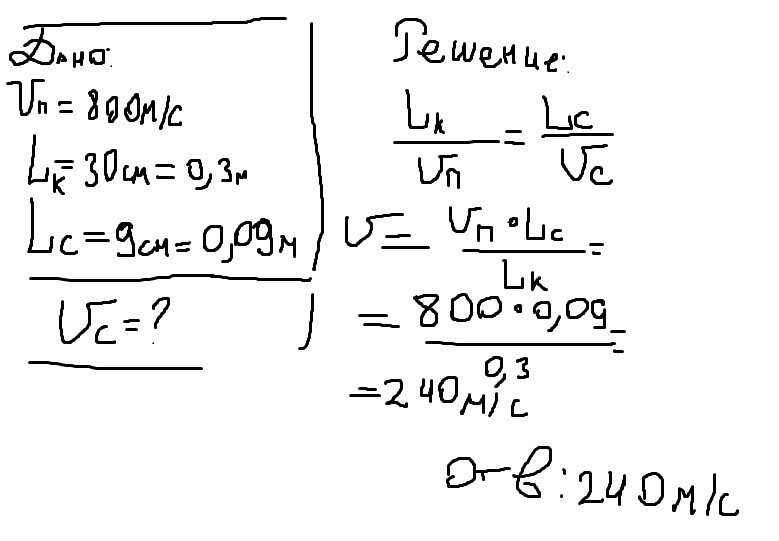 Дано:
Vп = 800м/с
Lк = 30см = 0,3м
Lс = 9см = 0,09м
Vс = ?
Решение:
Lк/Vп = Lс/Vс
V = Vп · Lс / Lк =
= 800 · 0,09 / 0,3 =
= 240м/с
Отв: 240м/с